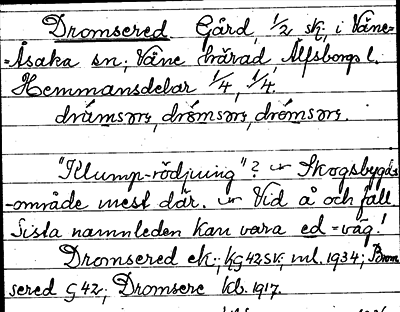 Dromsered. Gård, 1/2 sk., i Väne-
=Åsaka sn; Väne härad Älfsborgs l.
Hemmansdelar 1/4, 1/4.
"Klump-rödjning"? Skogsbygds
-område mest där. Vid å och fall.
Sista namnleden kan vara ed = väg!
Dromsered ek.; kg 42 SV, ml. 1934; Brom
sered G 42; Dromsere kb. 1917.